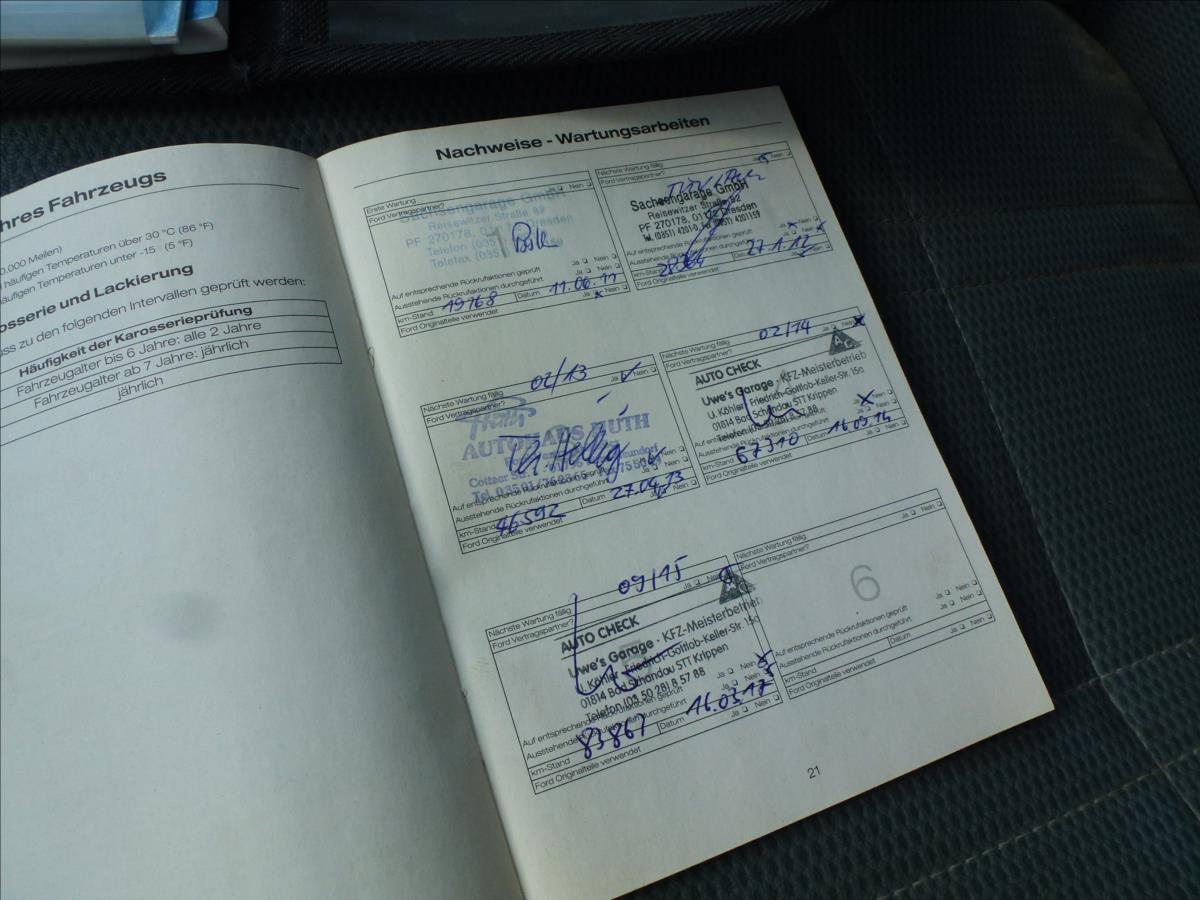 hres Fahrzeugs
0.000 Meilen)
häufigen Temperaturen über 30 °C (86 °F)
äufigen Temperaturen unter -15 (5 °F)
osserie und Lackierung
ss zu den folgenden Intervallen geprüft werden:
Häufigkeit der Karosserieprüfung
Fahrzeugalter bis 6 Jahre: alle 2 Jahre
Fahrzeugalter ab 7 Jahre: jährlich
jährlich
Nachweise - Wartungsarbeiten
Erste Wartung
Ford Vertragspartner? Ja Nein
Sachsengarage GmbH
Reisewitzer Straße 82
PF 270178, 01 Dresden
Telefon (035
Telefax (035
1
Auf entsprechende Rückrufaktionen geprüft Ja Nein
Ausstehende Rückrufaktionen durchgeführt. Ja Nein
km-Stand 19768 Datum 11.06.11
Ford Originalteile verwendet Ja Nein
Nächste Wartung fällig
Ford Vertragspartner? Ja Nein
Sachsengarage GmbH
Reisewitzer Straße 82
PF 270178, 01172 Dresden
Tel. (0351) 4201-0, Fax (0351) 4201159
Auf entsprechende Rückrufaktionen geprüft Ja Nein
Ausstehende Rückrufaktionen durchgeführt Ja Nein
km-Stand Datum 27.1.12
Ford Originalteile verwendet Ja Nein
Nächste Wartung fällig 02/13
Ford Vertragspartner? Ja Nein
AUTOHAUS PUTH
Auf entsprechende Rückrufaktionen geprüft
Ausstehende Rückrufaktionen durchgeführt
km-Stand 46592 Datum 27.04.13
Ford Originalteile verwendet
Nächste Wartung fällig 02/14
Ford Vertragspartner? Ja Nein
AUTO CHECK
Uwe's Garage · KFZ-Meisterbetrieb
U. Köhler Friedrich-Gottlob-Keller-Str. 15a
01814 Bad Schandau STT Krippen
Telefon (03 50 28) 8 57 88
Auf entsprechende Rückrufaktionen geprüft
Ausstehende Rückrufaktionen durchgeführt Ja Nein
km-Stand 67310 Datum 16.09.14
Ford Originalteile verwendet Ja Nein
Nächste Wartung fällig 09/15
Ford Vertragspartner? Ja Nein
AUTO CHECK
Uwe's Garage · KFZ-Meisterbetrieb
Köhler Friedrich-Gottlob-Keller-Str. 15a
01814 Bad Schandau STT Krippen
Telefon (03 50 28) 8 57 88
Auf entsprechende Rückrufaktionen geprüft Ja Nein
Ausstehende Rückrufaktionen durchgeführt Ja Nein
km-Stand 83867 Datum 16.03.17
Ford Originalteile verwendet Ja Nein
Nächste Wartung fällig
Ford Vertragspartner? Ja Nein
6
Auf entsprechende Rückrufaktionen geprüft Ja Nein
Ausstehende Rückrufaktionen durchgeführt. Ja Nein
km-Stand Datum
Ford Originalteile verwendet Ja Nein
21